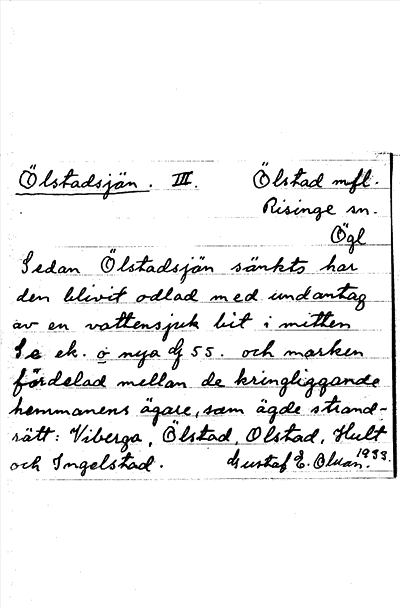 Ölstadsjön. III. Ölstad mfl.
Risinge sn.
Ögl
Sedan Ölstadsjön sänkts har
den blivit odlad med undantag
av en vattensjuk bit i mitten
Se ek. o nya 55. och marken
fördelad mellan de kringliggande
hemmanens ägare, som ägde strand-
rätt: Viberga, Ölstad, Olstad, Hult
och Ingelstad. Gustaf E. 1933.